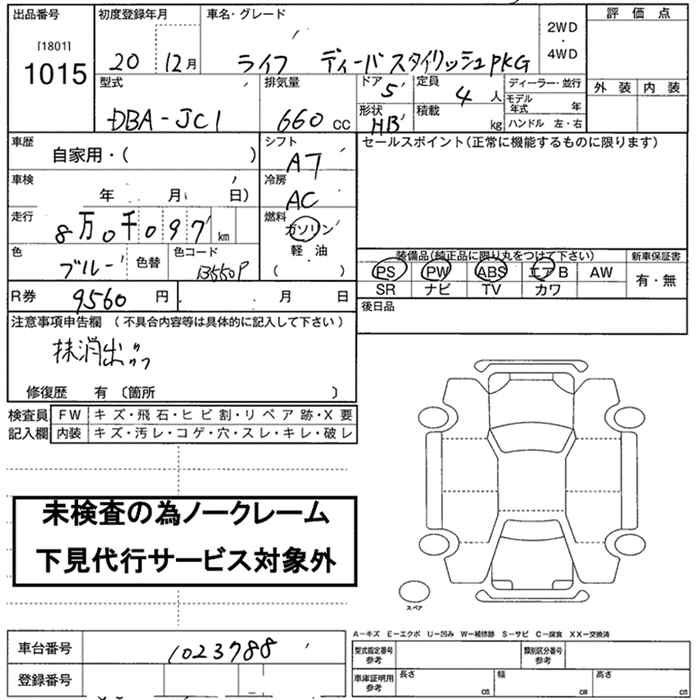 出品番号 初度登録年月 車名・グレード 評価点
[1801]
1015 20 12月 ライフ ディーバ スタイリッシュPKG 2WD・4WD
型式 排気量 ドア 5 定員 4人 ディーラー・並行 外装 内装
DBA-JC1 660cc 形状 HB 積載 kg モデル年式 年
ハンドル 左・右
車歴 自家用・( ) シフト AT セールスポイント(正常に機能するものに限ります)
車検 年 月( 日) 冷房 AC
走行 8万0千097km 燃料 ガソリン
軽・油
( )
色 ブルー 色替 色コード B550P
装備品(純正品に限り丸をつけて下さい) 新車保証書
PS PW ABS エアB AW 有・無
SR ナビ TV カワ
R券 9560円 年 月 日 後日品
注意事項申告欄 (不具合内容等は具体的に記入して下さい)
抹消出
修復歴 有 〔箇所 〕
検査員 FW キズ・飛石・ヒビ割・リペア跡・X要
記入欄 内装 キズ・汚レ・コゲ・穴・スレ・キレ・破レ
未検査の為ノークレーム
下見代行サービス対象外
スペア
A-キズ E-エクボ U-凹み W-補修跡 S-サビ C-腐食 XX-交換済
車台番号 1023788 型式指定番号 参考 類別区分番号 参考
登録番号 車庫証明用 参考 長さ cm 幅 cm 高さ cm